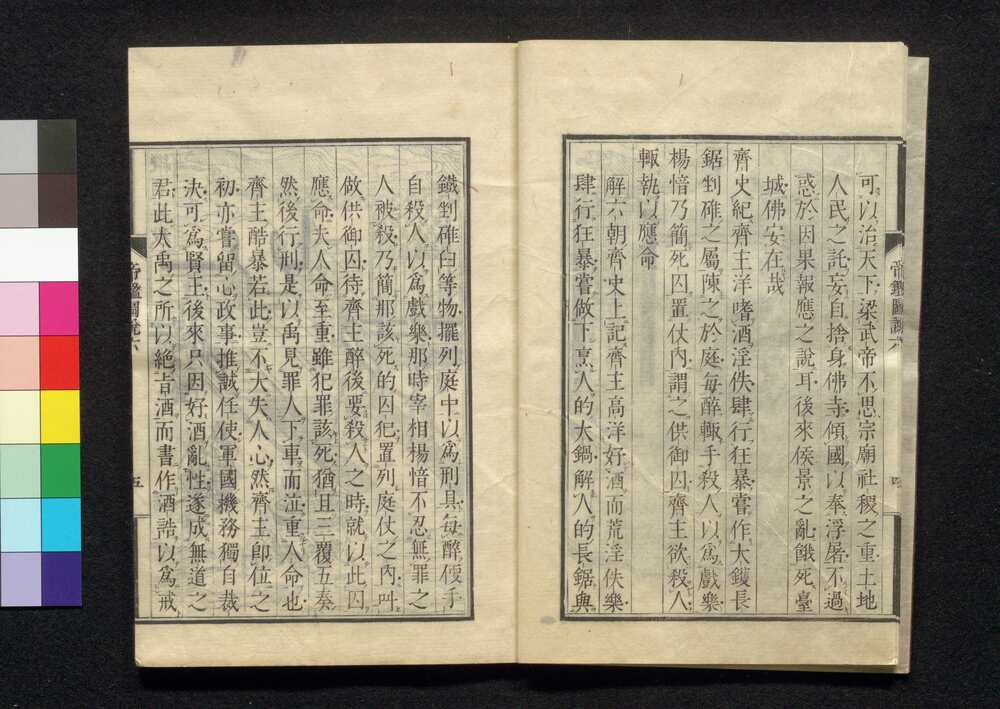 可以治天下梁武帝不思宗廟社稷之重土地
人民之託妄自捨身佛寺傾國以奉浮屠不過
惑於因果報應之說耳後來侯景之亂餓死臺
城佛安在哉
齊史紀齊主洋嗜酒淫佚肆行狂暴嘗作大鑊長
鋸剉碓之屬陳之於庭每醉輒手殺人以爲戲樂
楊愔乃簡死囚置仗內謂之供御囚齊主欲殺人
輒執以應命
解六朝齊史上記齊主高洋好酒而荒淫佚樂
肆行狂暴嘗做下烹人的大鍋解人的長鋸與
帝鑑圖說六
鐵剉碓臼等物擺列庭中以爲刑具每醉便手
自殺人以爲戲樂那時宰相楊愔不忍無罪之
人被殺乃簡那該死的囚犯置列庭仗之內叫
做供御囚待齊主醉後要殺人之時就以此囚
應命夫人命至重雖犯罪該死猶且三覆五奏
然後行刑是以禹見罪人下車而泣重人命也
齊主酷暴若此豈不大失人心然齊主卽位之
初亦嘗留心政事推誠任使軍國機務獨自裁
決可爲賢主後來只因好酒亂性遂成無道之
君此大禹之所以絶旨酒而書作酒誥以爲戒
帝鑑圖說六
五